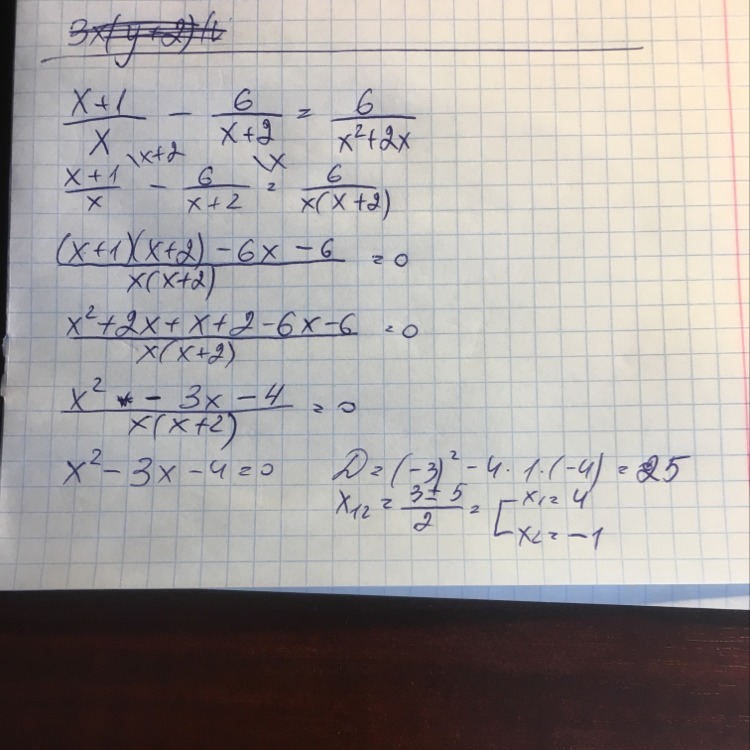 3x(y+2)/
x+1/x - 6/x+2 = 6/x²+2x
x+1/x \x+2 - 6/x+2 \x = 6/x(x+2)
(x+1)(x+2)-6x-6/x(x+2) = 0
x²+2x+x+2-6x-6/x(x+2) = 0
x² - 3x-4/x(x+2) = 0
x²-3x-4=0 D=(-3)²-4·1·(-4)=25
x12 = 3±5/2 = [x1=4
x2=-1